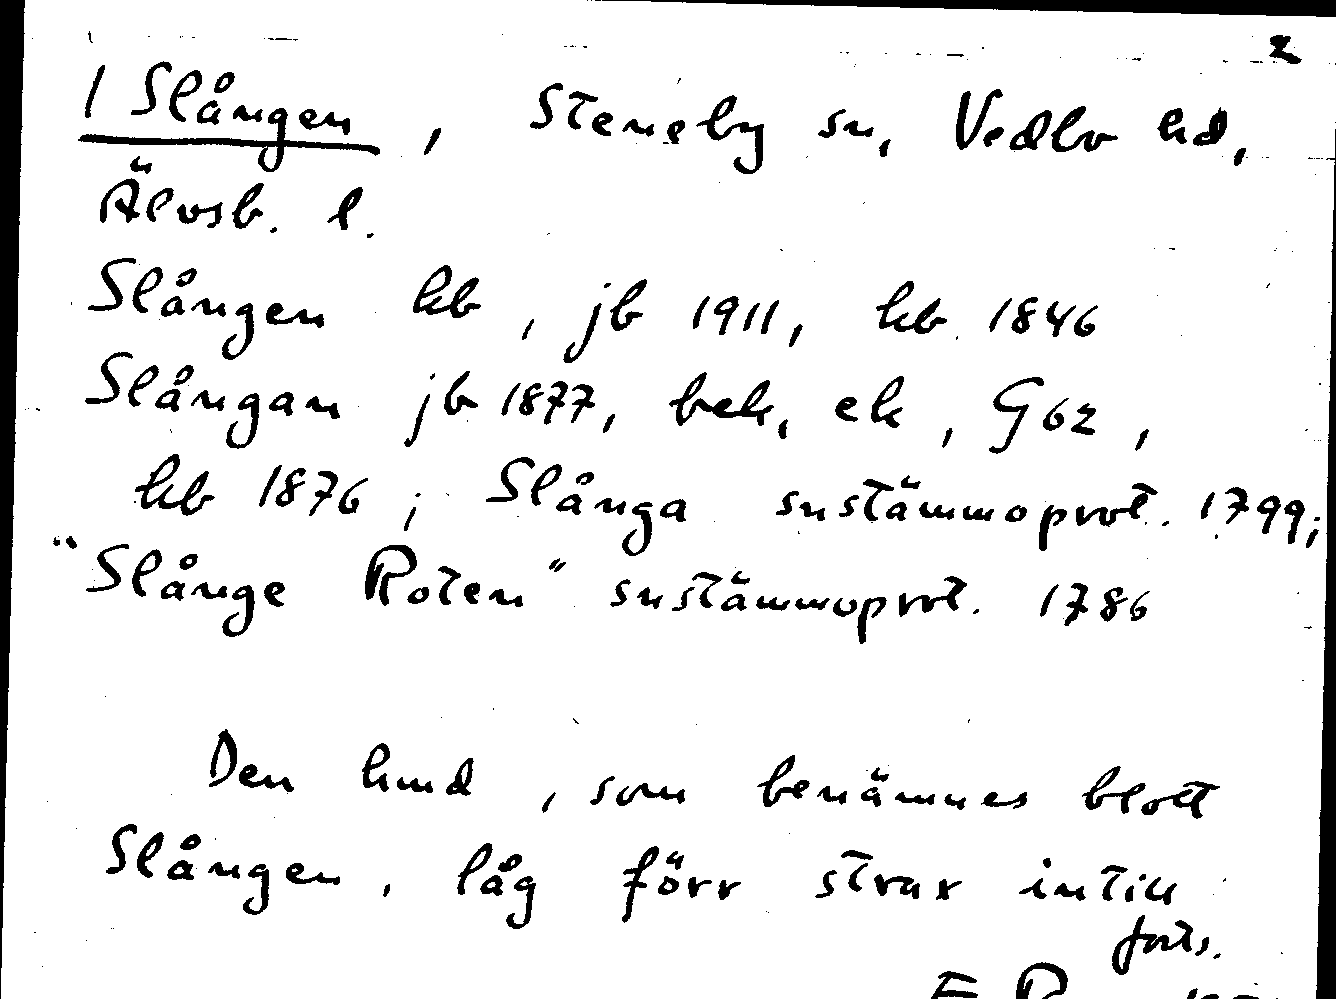 2
1 Slången, Steneby sn, Vedbo hd,
Älvsb. l.
Slången kb, jb 1911, kb 1846
Slångan jb 1877, bek, ek, G62,
kb 1876; Slånga snstämmoprot. 1799;
"Slånge Roten" snstämmoprot. 1786
Den hmd, som benämnes blott
Slången, låg förr strax intill
forts.